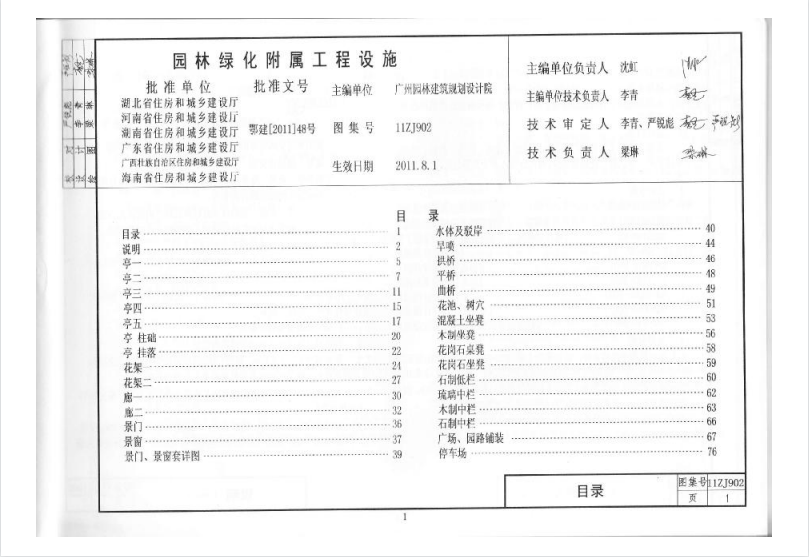 园林绿化附属工程设施
批准单位 批准文号 主编单位 广州园林建筑规划设计院
湖北省住房和城乡建设厅
河南省住房和城乡建设厅
湖南省住房和城乡建设厅 鄂建[2011]48号 图集号 11ZJ902
广东省住房和城乡建设厅
广西壮族自治区住房和城乡建设厅 生效日期 2011.8.1
海南省住房和城乡建设厅
主编单位负责人 沈虹
主编单位技术负责人 李青
技术审定人 李青、严锐彪
技术负责人 梁琳
目录
目录 1
说明 2
亭一 5
亭二 7
亭三 11
亭四 15
亭五 17
亭 柱础 20
亭 挂落 22
花架一 24
花架二 27
廊一 30
廊二 32
景门 36
景窗 37
景门、景窗套详图 39
水体及驳岸 40
旱喷 44
拱桥 46
平桥 48
曲桥 49
花池、树穴 51
混凝土坐凳 53
木制坐凳 56
花岗石桌凳 58
花岗石坐凳 59
石制低栏 60
琉璃中栏 62
木制中栏 63
石制中栏 66
广场、园路铺装 67
停车场 76
目录
图集号 11ZJ902
页 1
1